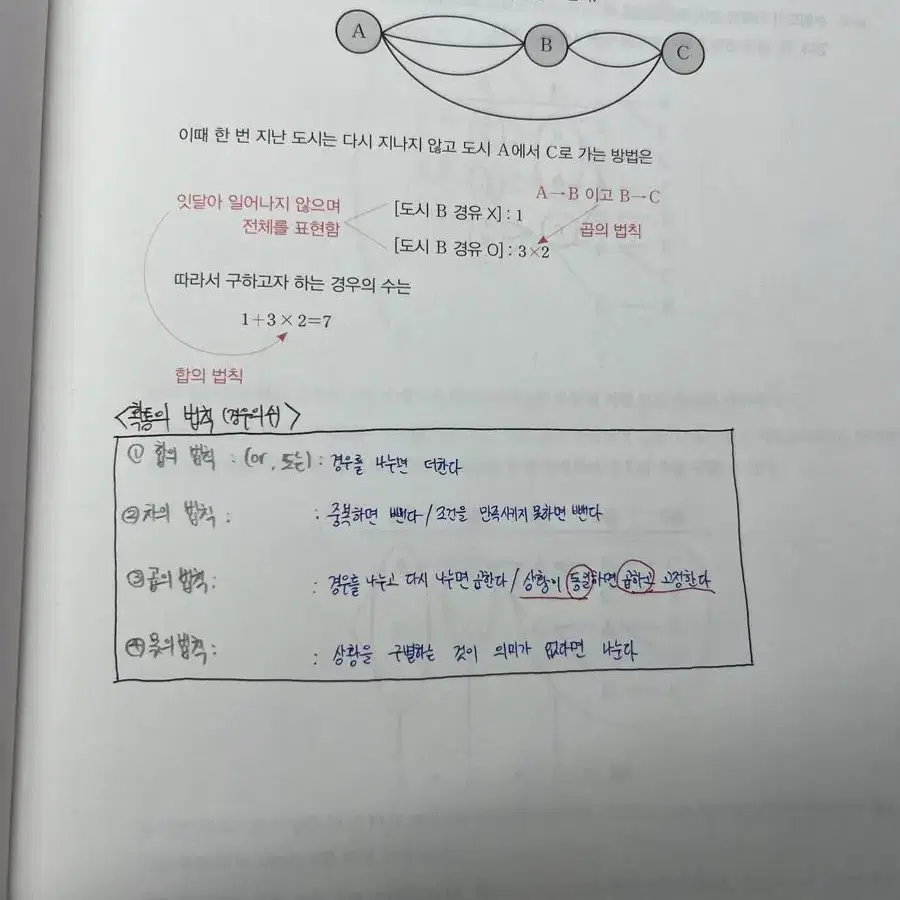 A
B
C
이때 한 번 지난 도시는 다시 지나지 않고 도시 A에서 C로 가는 방법은
A→B 이고 B→C
잇달아 일어나지 않으며
전체를 표현함
[도시 B 경유 X] : 1
곱의 법칙
[도시 B 경유 O] : 3×2
따라서 구하고자 하는 경우의 수는
1+3×2=7
합의 법칙
<확통의 법칙 (경우의 수)>
① 합의 법칙 : (or, 또는) : 경우를 나누면 더한다
② 차의 법칙 : : 중복하면 뺀다 / 조건을 만족시키지 못하면 뺀다
③ 곱의 법칙 : : 경우를 나누고 다시 나누면 곱한다 / 상황이 동일하면 곱하고 고정한다
④ 몫의 법칙 : : 상황을 구별하는 것이 의미가 없다면 나눈다